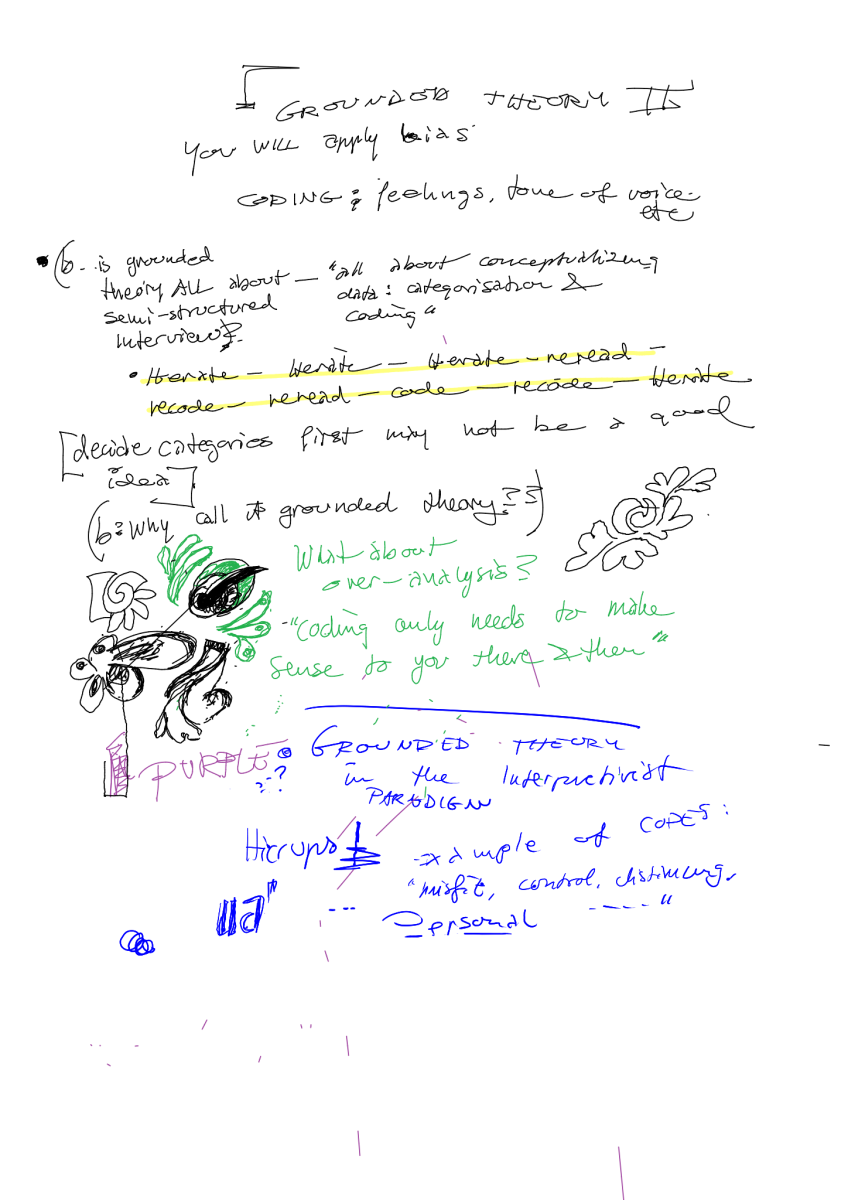 GROUNDED THEORY II
You WILL apply bias
CODING: feelings, tone of voice
etc
(b - is grounded
theory ALL about — "all about conceptualizing
semi-structured data: categorisation &
interview? coding"
• Iterate — Iterate — Iterate — reread —
recode — reread — code — recode — Iterate
[decide categories first may not be a good
idea]
(b: Why call it grounded theory??)
What about
over-analysis?
- "Coding only needs to make
sense to you there & then"
PURPLE
--?
GROUNDED THEORY
in the Interpretivist
PARADIGM
Hiccups
example of CODES:
"misfit, control, distancing,
--- Personal ----"